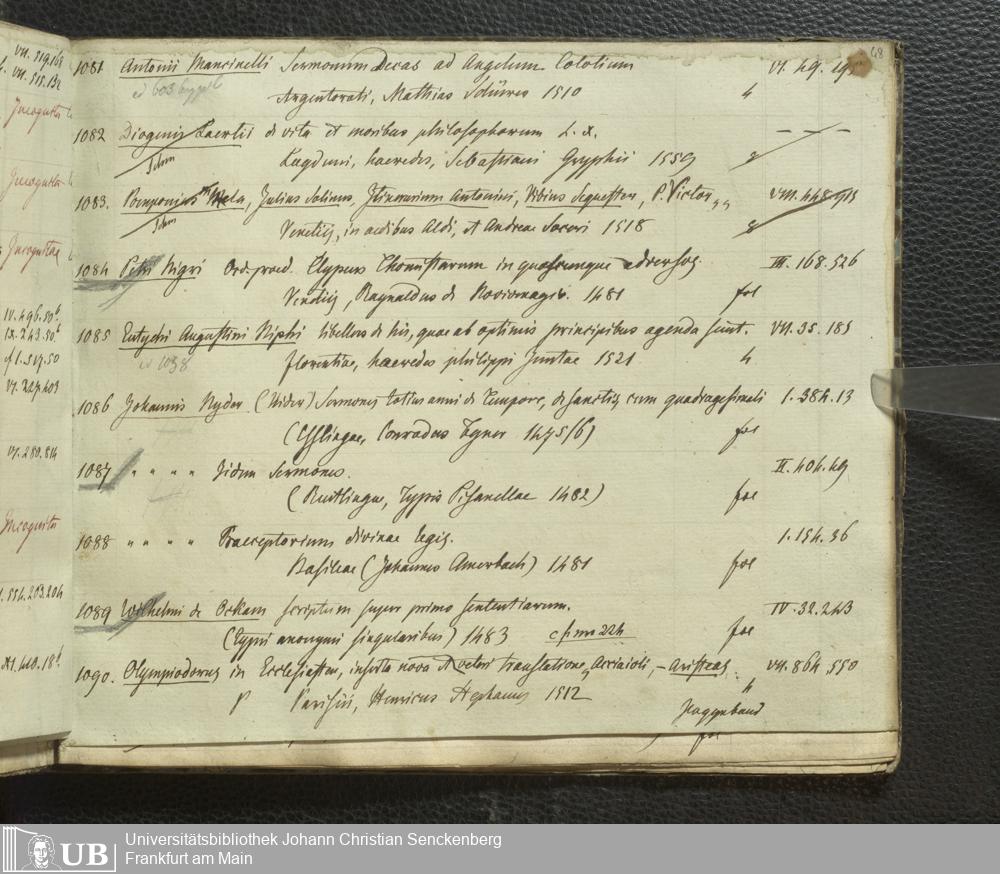 VII. 519.168
VII. 515.132
Incognita
Incognita
Incognitae
IV. 496.50b
IX. 243.50b
cf I. 519.50
VI. 327.403
VI. 280.814
Incognita
I. 554.203.204
XI. 410.18b
68
1081 Antonii Mancinelli Sermonum Decas ad Angelum Colotium VI. 49.
cf 603
Argentorati, Mathias Schürer 1510 4
1082 Diogenis Laertii de vita et moribus philosophorum L. X. — — —
Lugduni, haeredes, Sebastiani Gryphii 1559 8
1083. Pomponius Mela, Julius Solinus, Itinerarium Antonini, Vibius Sequester, P. Victor VIII. 448.
Venetiis, in aedibus Aldi, et Andreae Soceri 1518 8
1084 Petri Nigri Ord. praed. Clypeus Thomistarum in quoscunque adversos. III. 168.526
Venetiis, Raynaldus de Noviomagio. 1481 fol
1085 Eutychi Augustini Niphi libellus de his, quae ab optimis principibus agenda sunt. VII. 35. 185
cf 1038
florentiae, haeredes philippi Juntae 1521 4
1086 Johannis Nyder (Nider) Sermones totius anni de tempore, de sanctis cum quadragesimali 1. 384.13
(Esslingae, Conradus Fyner 1475/6) fol
1087 " " " " Iidem Sermones. II. 404.49
(Reutlingae, Typis 1482) fol
1088 " " " " Praeceptorium divinae legis. 1. 154. 36
Basileae (Johannes Amerbach) 1481 fol
1089 Wilhelmi de Ockam scriptum super primo sententiarum. IV. 32.243
(Typi anonymi singularibus) 1483 cf inc 224 fol
1090. Olympiodorus in Ecclesiasten, inserta nova et veteri translatione, Acciaioli, – Aristeas VII. 864.550
P Parisiis, Henricus Stephanus 1512 4
fol
Universitätsbibliothek Johann Christian Senckenberg
Frankfurt am Main
UB